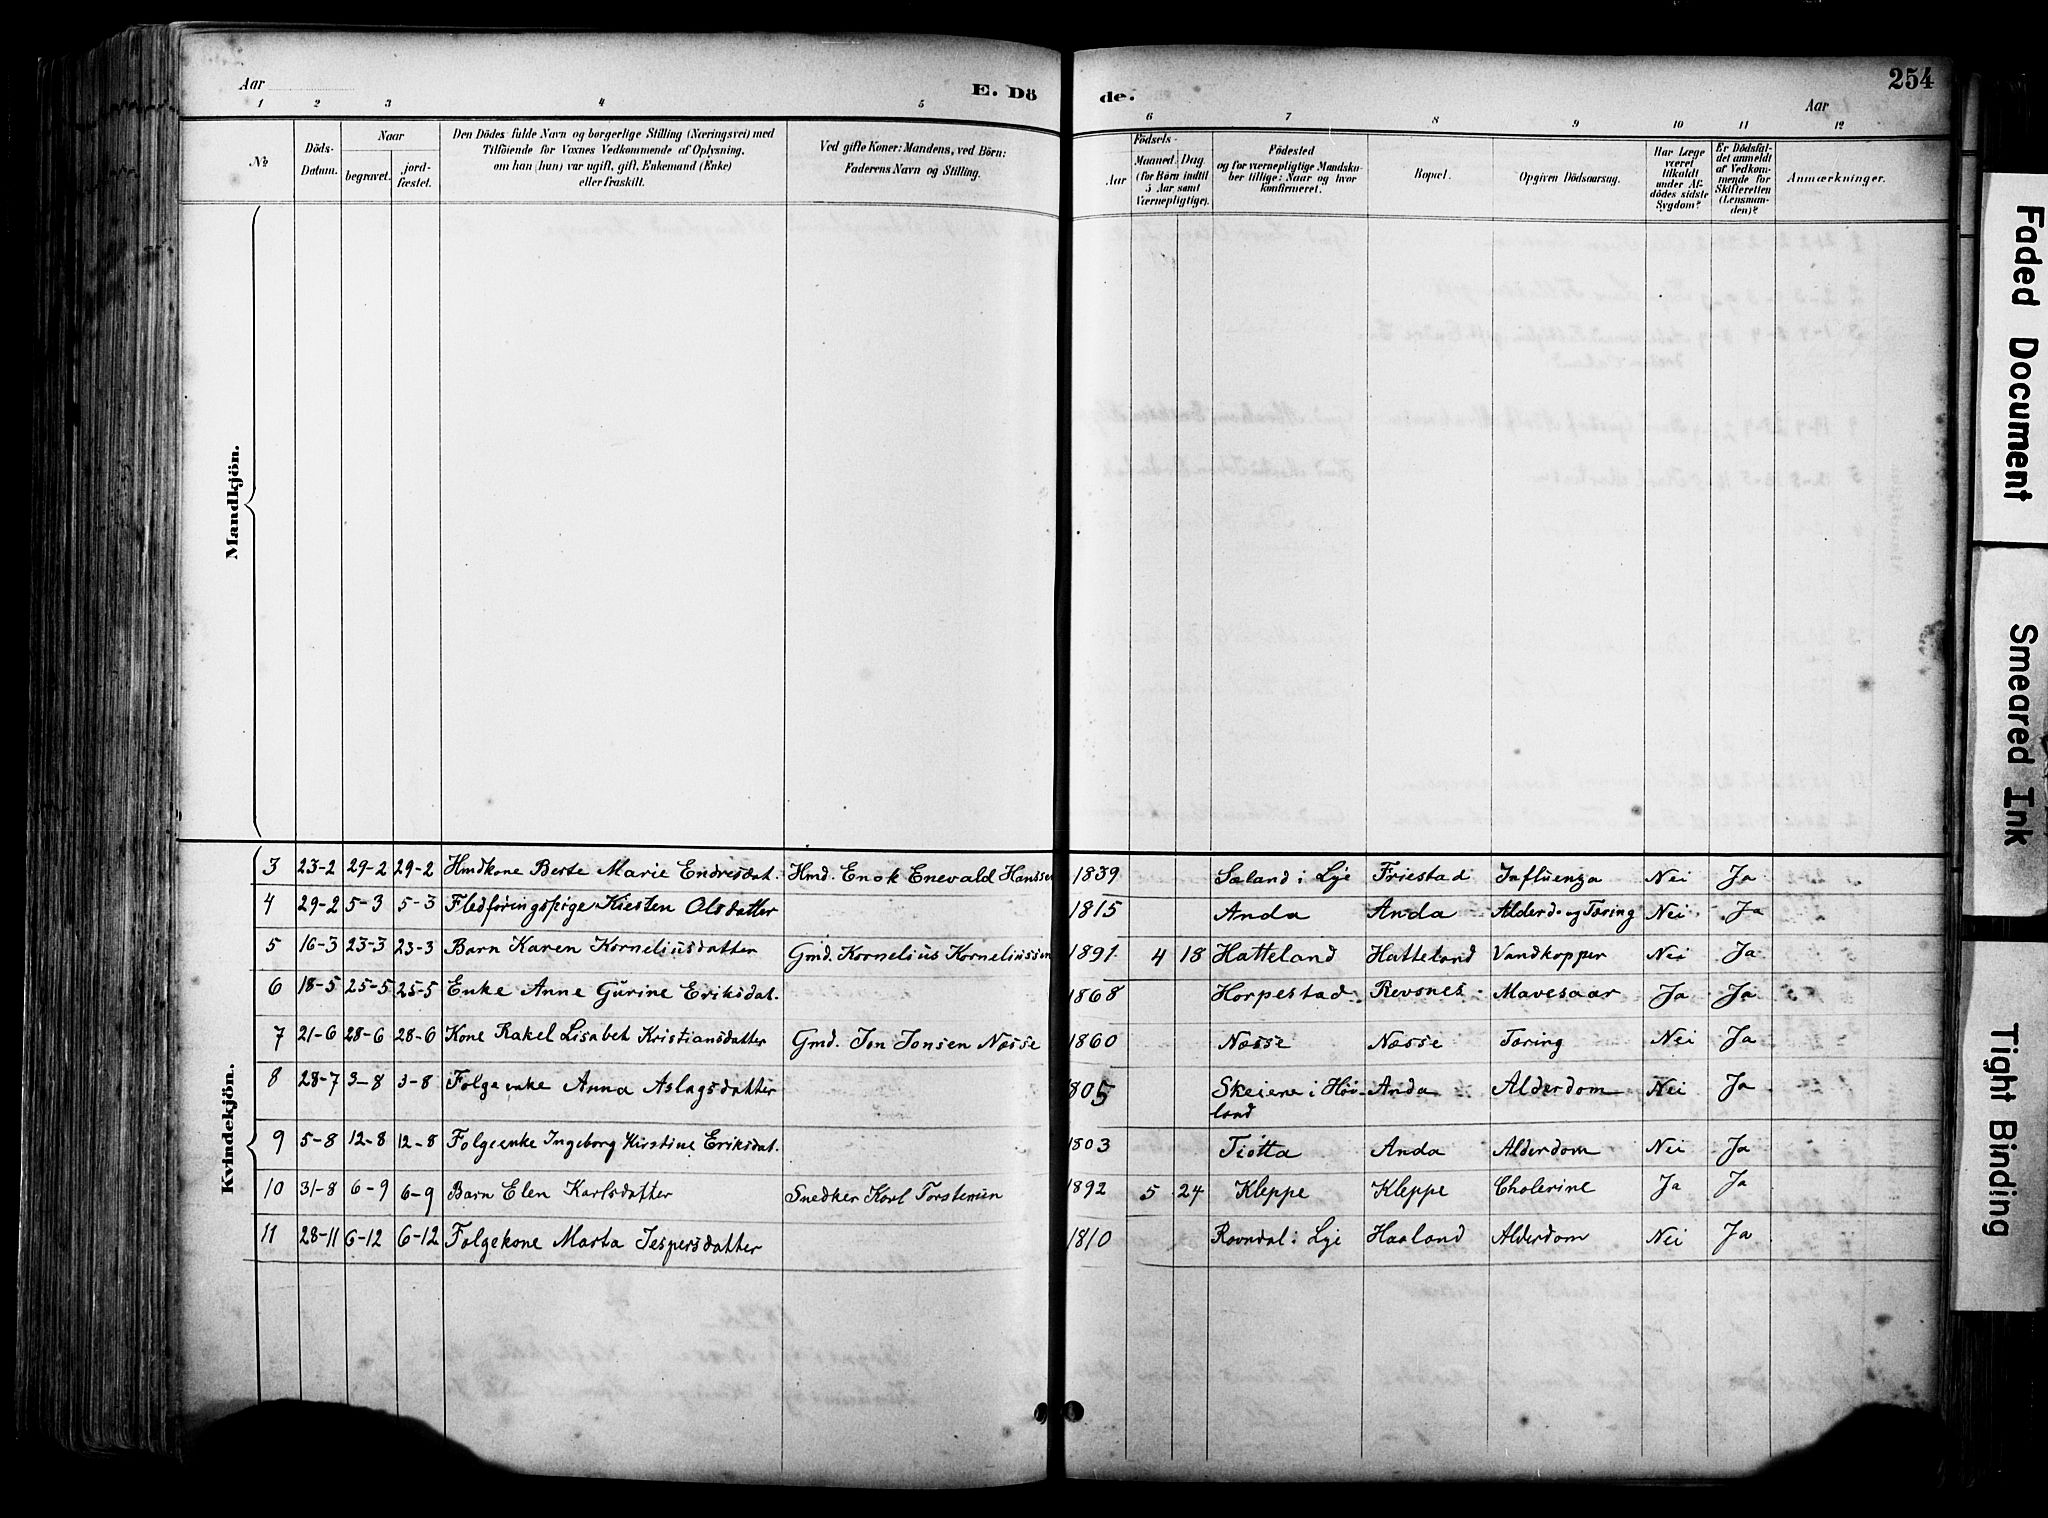 Aar
E. Dö
de.
Aar
254
1 2 3 4 5 6 7 8 9 10 11 12
No
Döds-
Datum.
Naar
begravet.
jord-
fæstet.
Den Dödes fulde Navn og borgerlige Stilling (Næringsvei) med
Tilföiende for Voxnes Vedkommende af Oplysning,
om han (hun) var ugift, gift, Enkemand (Enke)
eller fraskilt.
Ved gifte Koner: Mandens, ved Börn:
Faderens Navn og Stilling.
Födsels-
Aar
Maaned. Dag
(for Börn indtil
5 Aar samt
Værnepligtige).
Födested
og for værnepligtige Mandska-
ber tillige: Naar og hvor
konfirmeret.
Bopæl.
Opgiven Dödsaarsag.
Har Læge
været
tilkaldt
under Af-
dödes sidste
Sygdom?
Er Dödsfal-
det anmeldt
af Vedkom-
mende for
Skifteretten
(Lensman-
den)?
Anmærkninger.
Mandkjön.
Kvindekjön.
3 23-2 29-2 29-2 Hmdkone Berte Marie Endresdat. Hmd. Enok Enevald Hanssen 1839 Sæland i Lye Friestad Influenza Nei Ja
4 29-2 5-3 5-3 Fledföringspige Kirsten Olsdatter 1815 Anda Anda Alderd. og Tæring Nei Ja
5 16-3 23-3 23-3 Barn Karen Kornelıusdatter Gmd. Kornelius Korneliussen 1891 4 18 Hatteland Hatteland Vandkopper Nei Ja
6 18-5 25-5 25-5 Enke Anne Gurine Eriksdat. 1868 Horpestad Revsnes Mavesaar Ja Ja
7 21-6 28-6 28-6 Kone Rakel Lisabet Kristiansdatter Gmd. Jon Jonsen Næsse 1860 Næsse Næsse Tæring Nei Ja
8 28-7 3-8 3-8 Folgeenke Anna Aslagsdatter 1805 Skeiene i Höi- Anda Alderdom Nei Ja
land
9 5-8 12-8 12-8 Folgeenke Ingeborg Kirstine Eriksdat. 1803 Tiötta Anda Alderdom Nei Ja
10 31-8 6-9 6-9 Barn Elen Karlsdatter Snedker Karl Torstensen 1892 5 24 Kleppe Kleppe Cholerine Ja Ja
11 28-11 6-12 6-12 Folgekone Marta Jespersdatter 1810 Ravndal i Lye Haaland Alderdom Nei Ja
Faded Document
Smeared Ink
Tight Binding